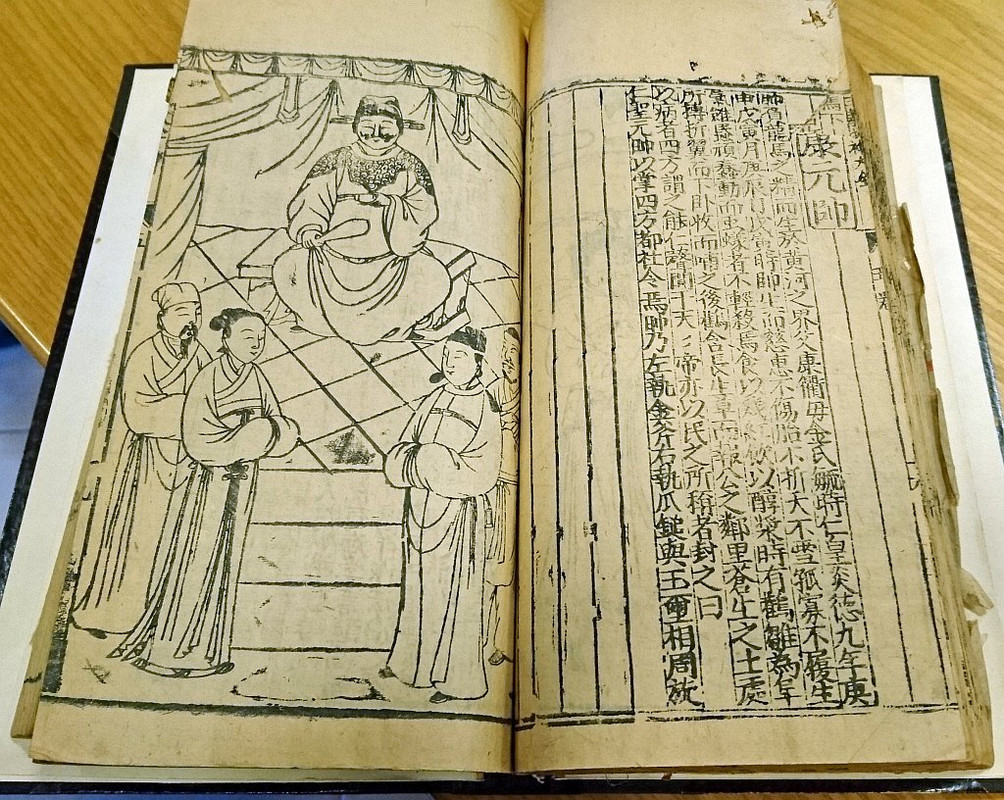 康元帥
帥負龍馬之精而生於黃河之界父康衢母金氏毓時仁皇炎德九年庚
申戊寅月庚辰日戊寅時帥生而慈惠不傷胎不折夭不雪孤寡不履生
雖頑蠢動而虫蟻者不輕殺焉食以飲以醇漿時有鸛雛為
所搏折翼而下卧收而哺之後鸛含長生草而報公之鄰里蒼生之土處
以病者四方謂之能仁聲聞于天〻帝亦以民之所稱者封之曰
仁聖元帥以掌四方都社令焉帥乃左執金斧右執瓜鎚與玉璽相周旋